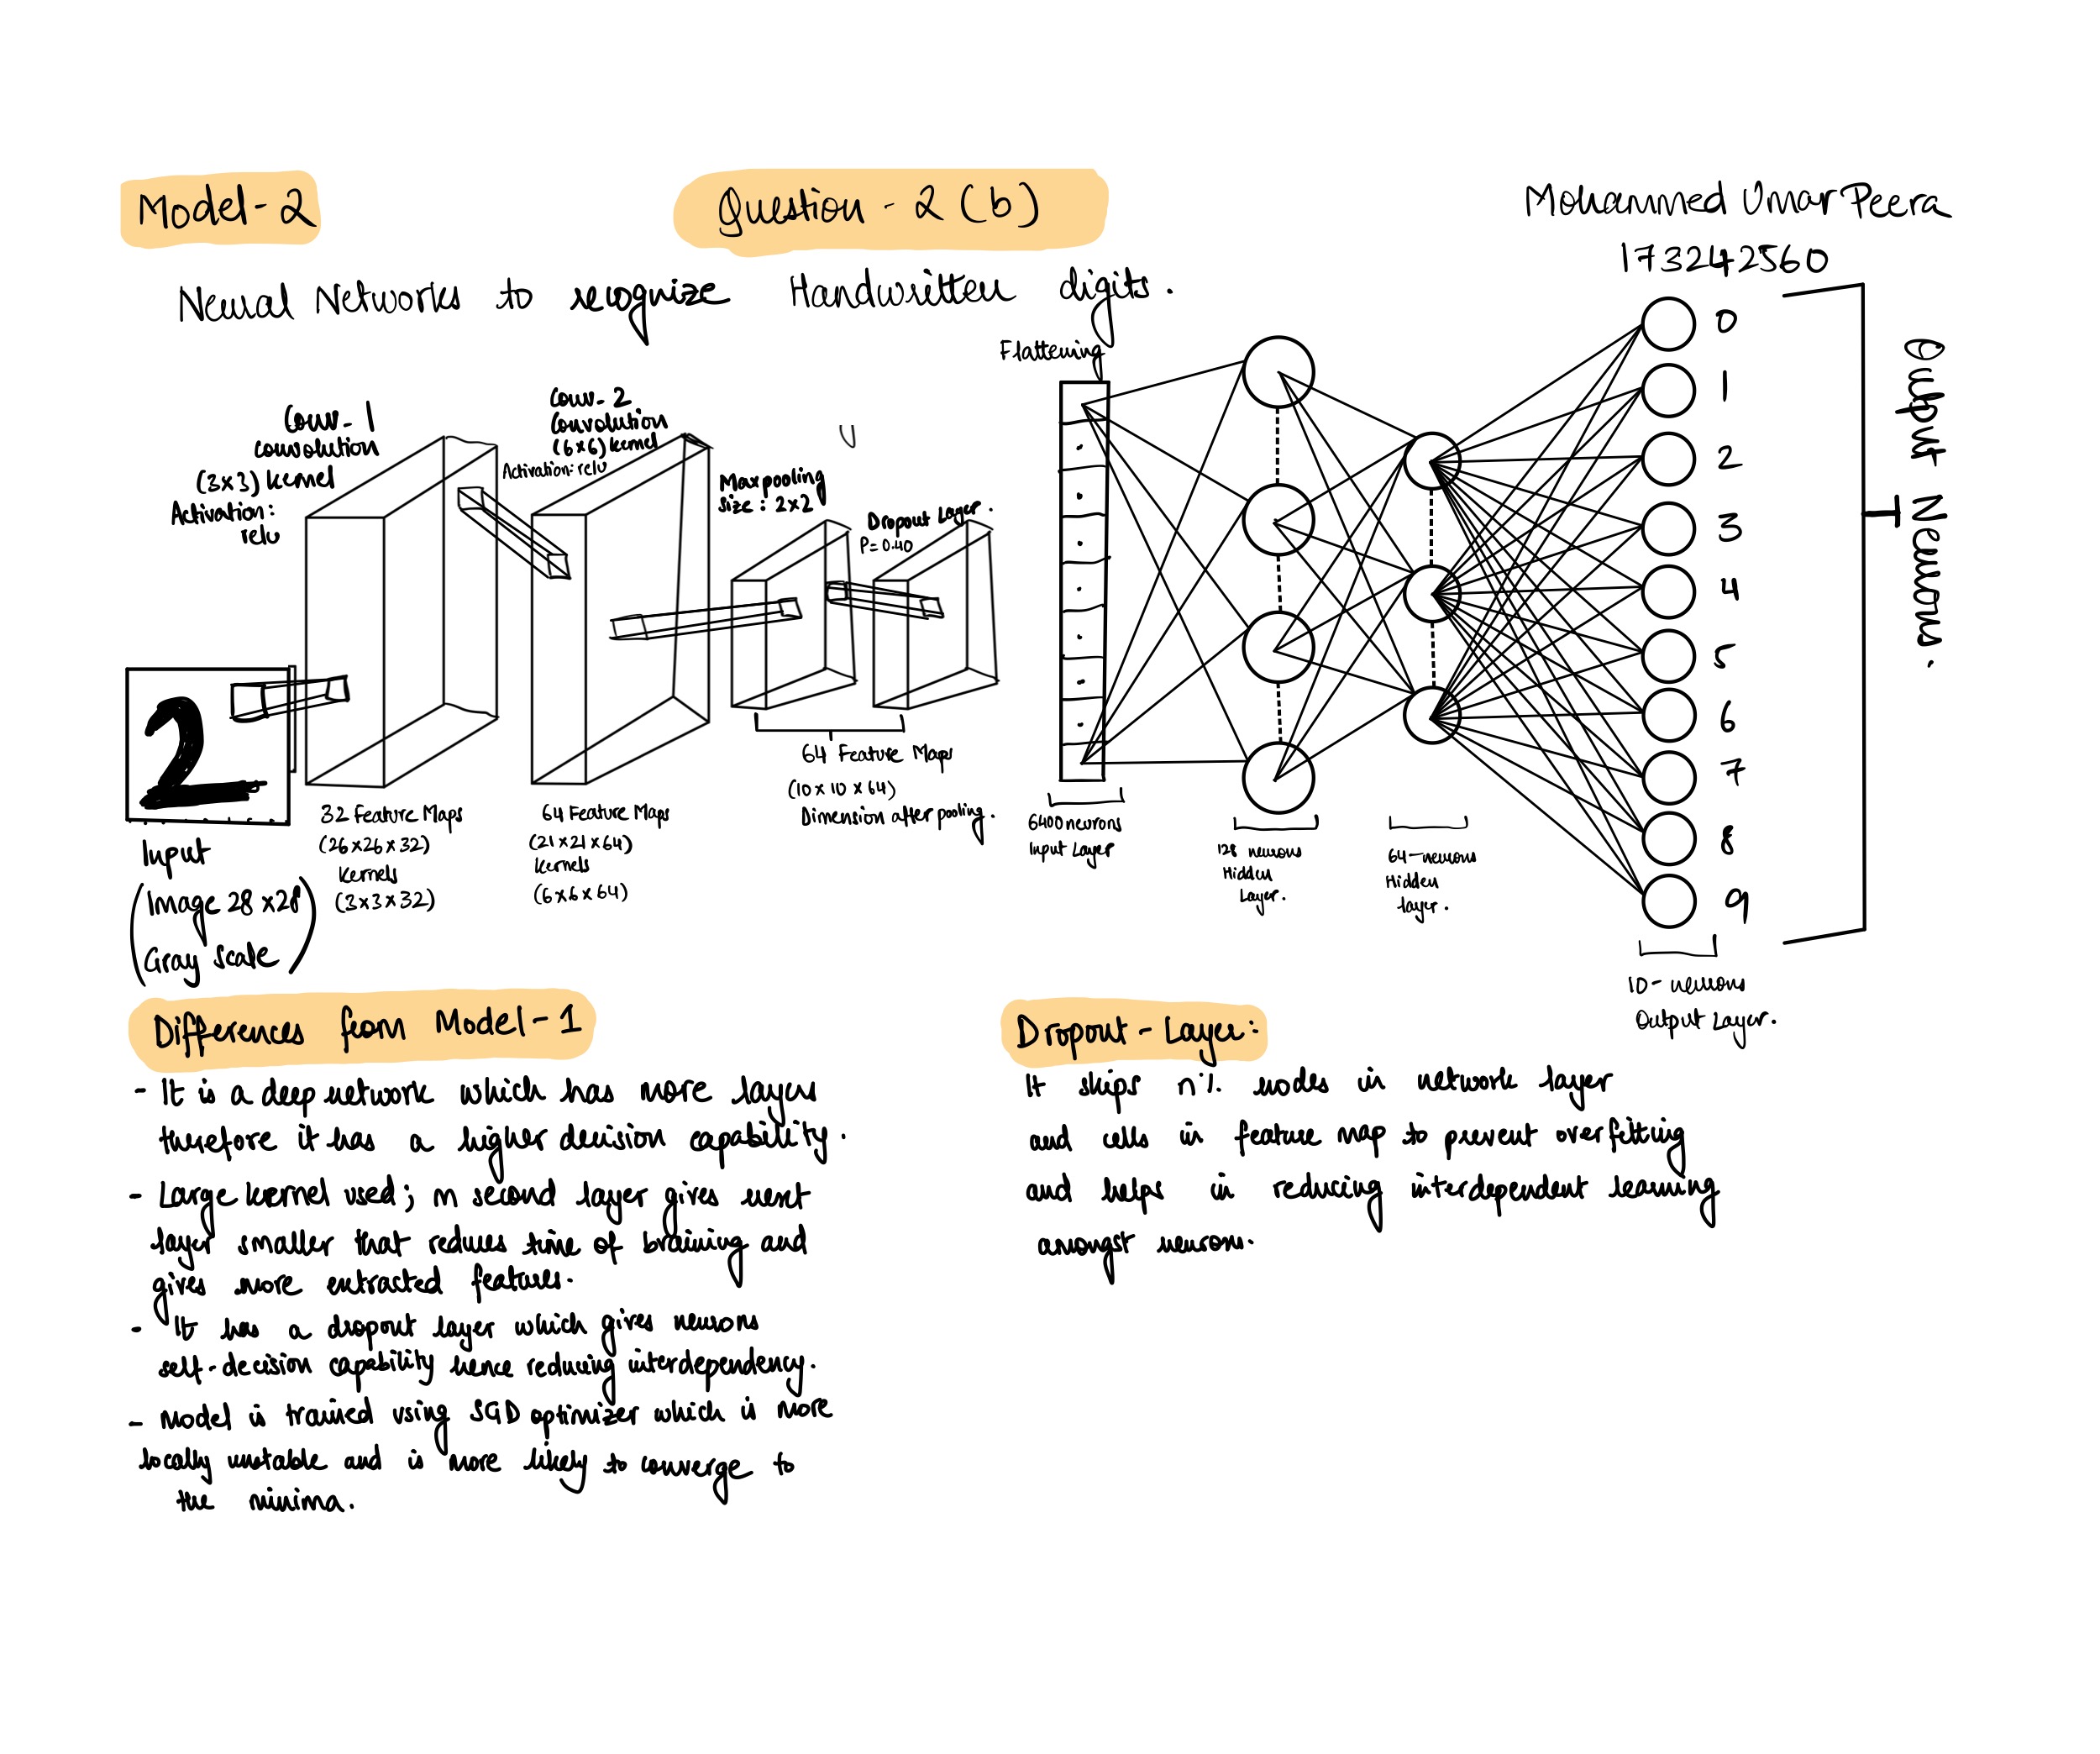 Model-2
Question - 2 (b)
Mohammed Umar Peera
173242560
Neural Networks to recognize Handwritten digits.
Conv-1
convolution
(3x3) kernel
Activation:
relu
Conv-2
Convolution
(6x6) kernel
Activation: relu
Maxpooling
Size: 2x2
Dropout Layer.
P=0.40
Flattening
2
Input
(Image 28x28
Gray Scale)
32 Feature Maps
(26x26x32)
Kernels
(3x3x32)
64 Feature Maps
(21x21x64)
Kernels
(6x6x64)
64 Feature Maps
(10x10x64)
Dimension after pooling.
6400 neurons
Input Layer
128 neurons
Hidden
Layer.
64-neurons
Hidden
layer.
0
1
2
3
4
5
6
7
8
9
10-neurons
Output Layer.
Output Neurons.
Differences from Model-1
- It is a deep network which has more layers
therefore it has a higher decision capability.
- Large kernel used; in second layer gives next
layer smaller that reduces time of training and
gives more extracted features.
- It has a dropout layer which gives neurons
self-decision capability hence reducing interdependency.
- Model is trained using SGD optimizer which is more
locally unstable and is more likely to converge to
the minima.
Dropout-Layer:
It skips n% nodes in network layer
and cells in feature map to prevent overfitting
and helps in reducing interdependent learning
amongst neurons.